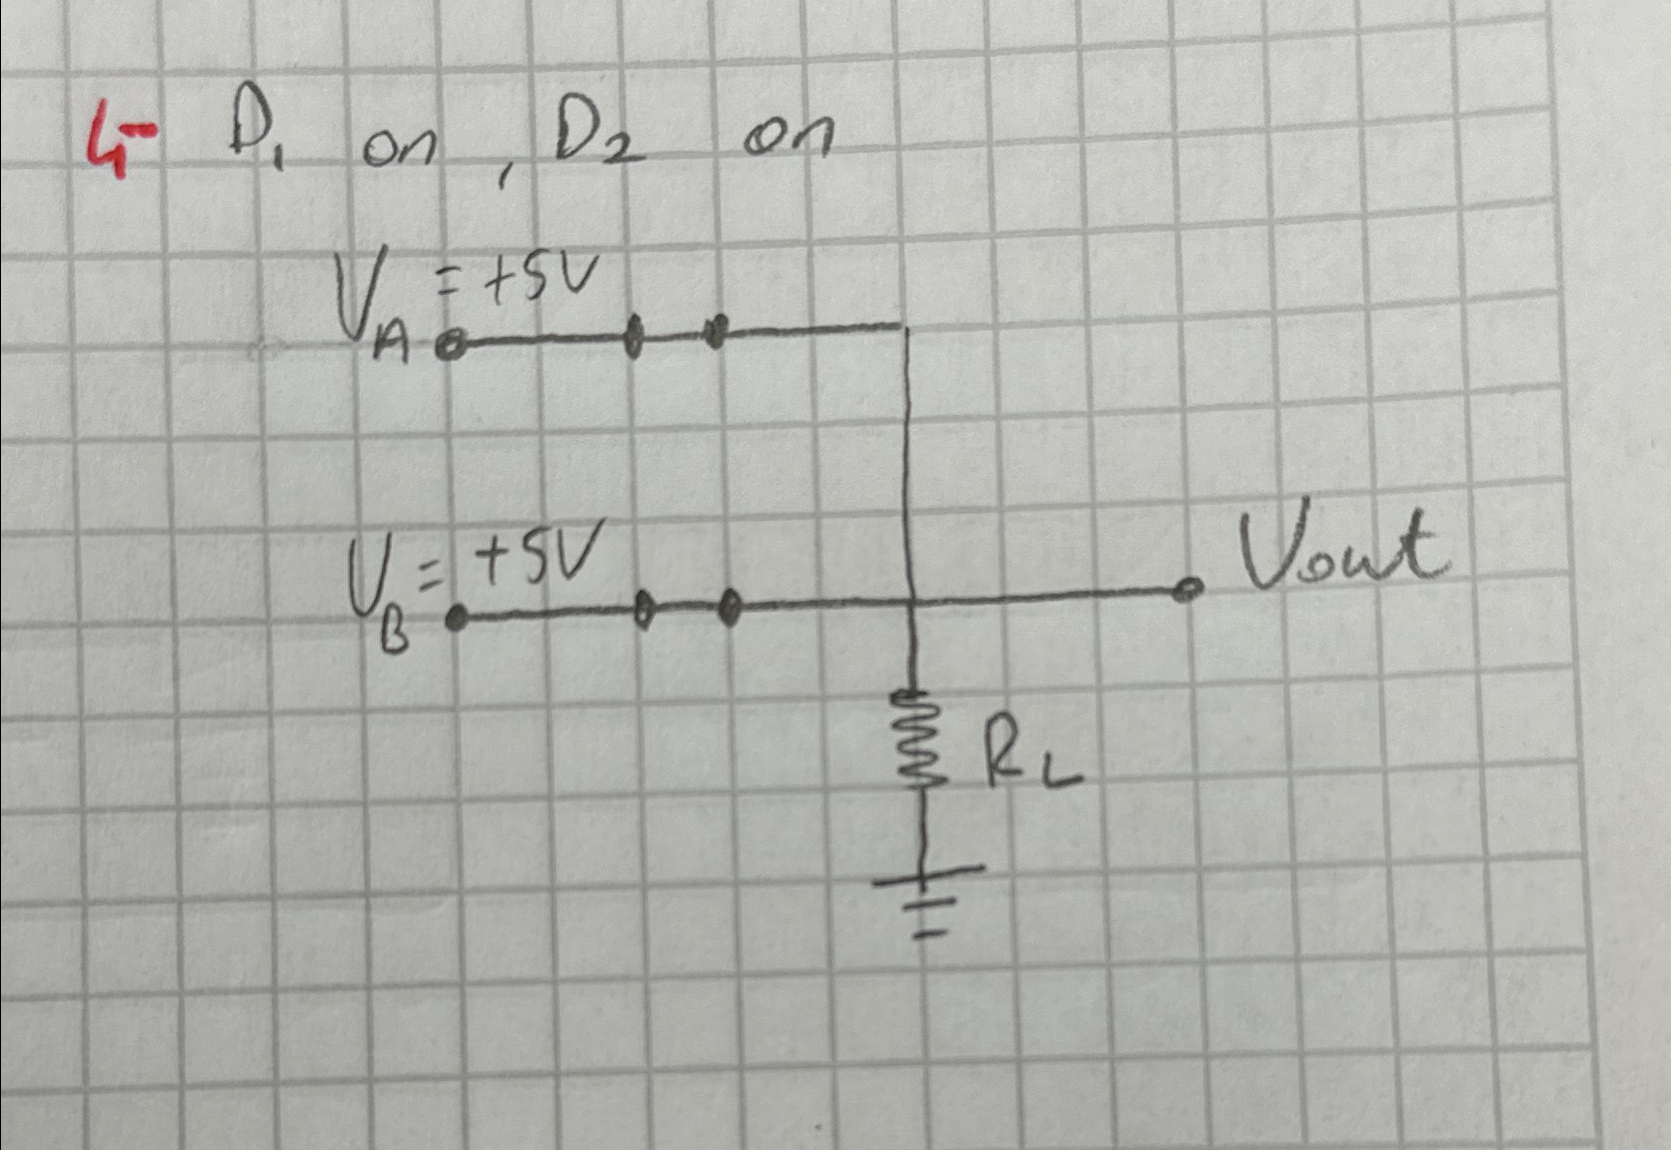 4- D₁ on, D₂ on
V_A = +5V
V_B = +5V
Vout
R_L